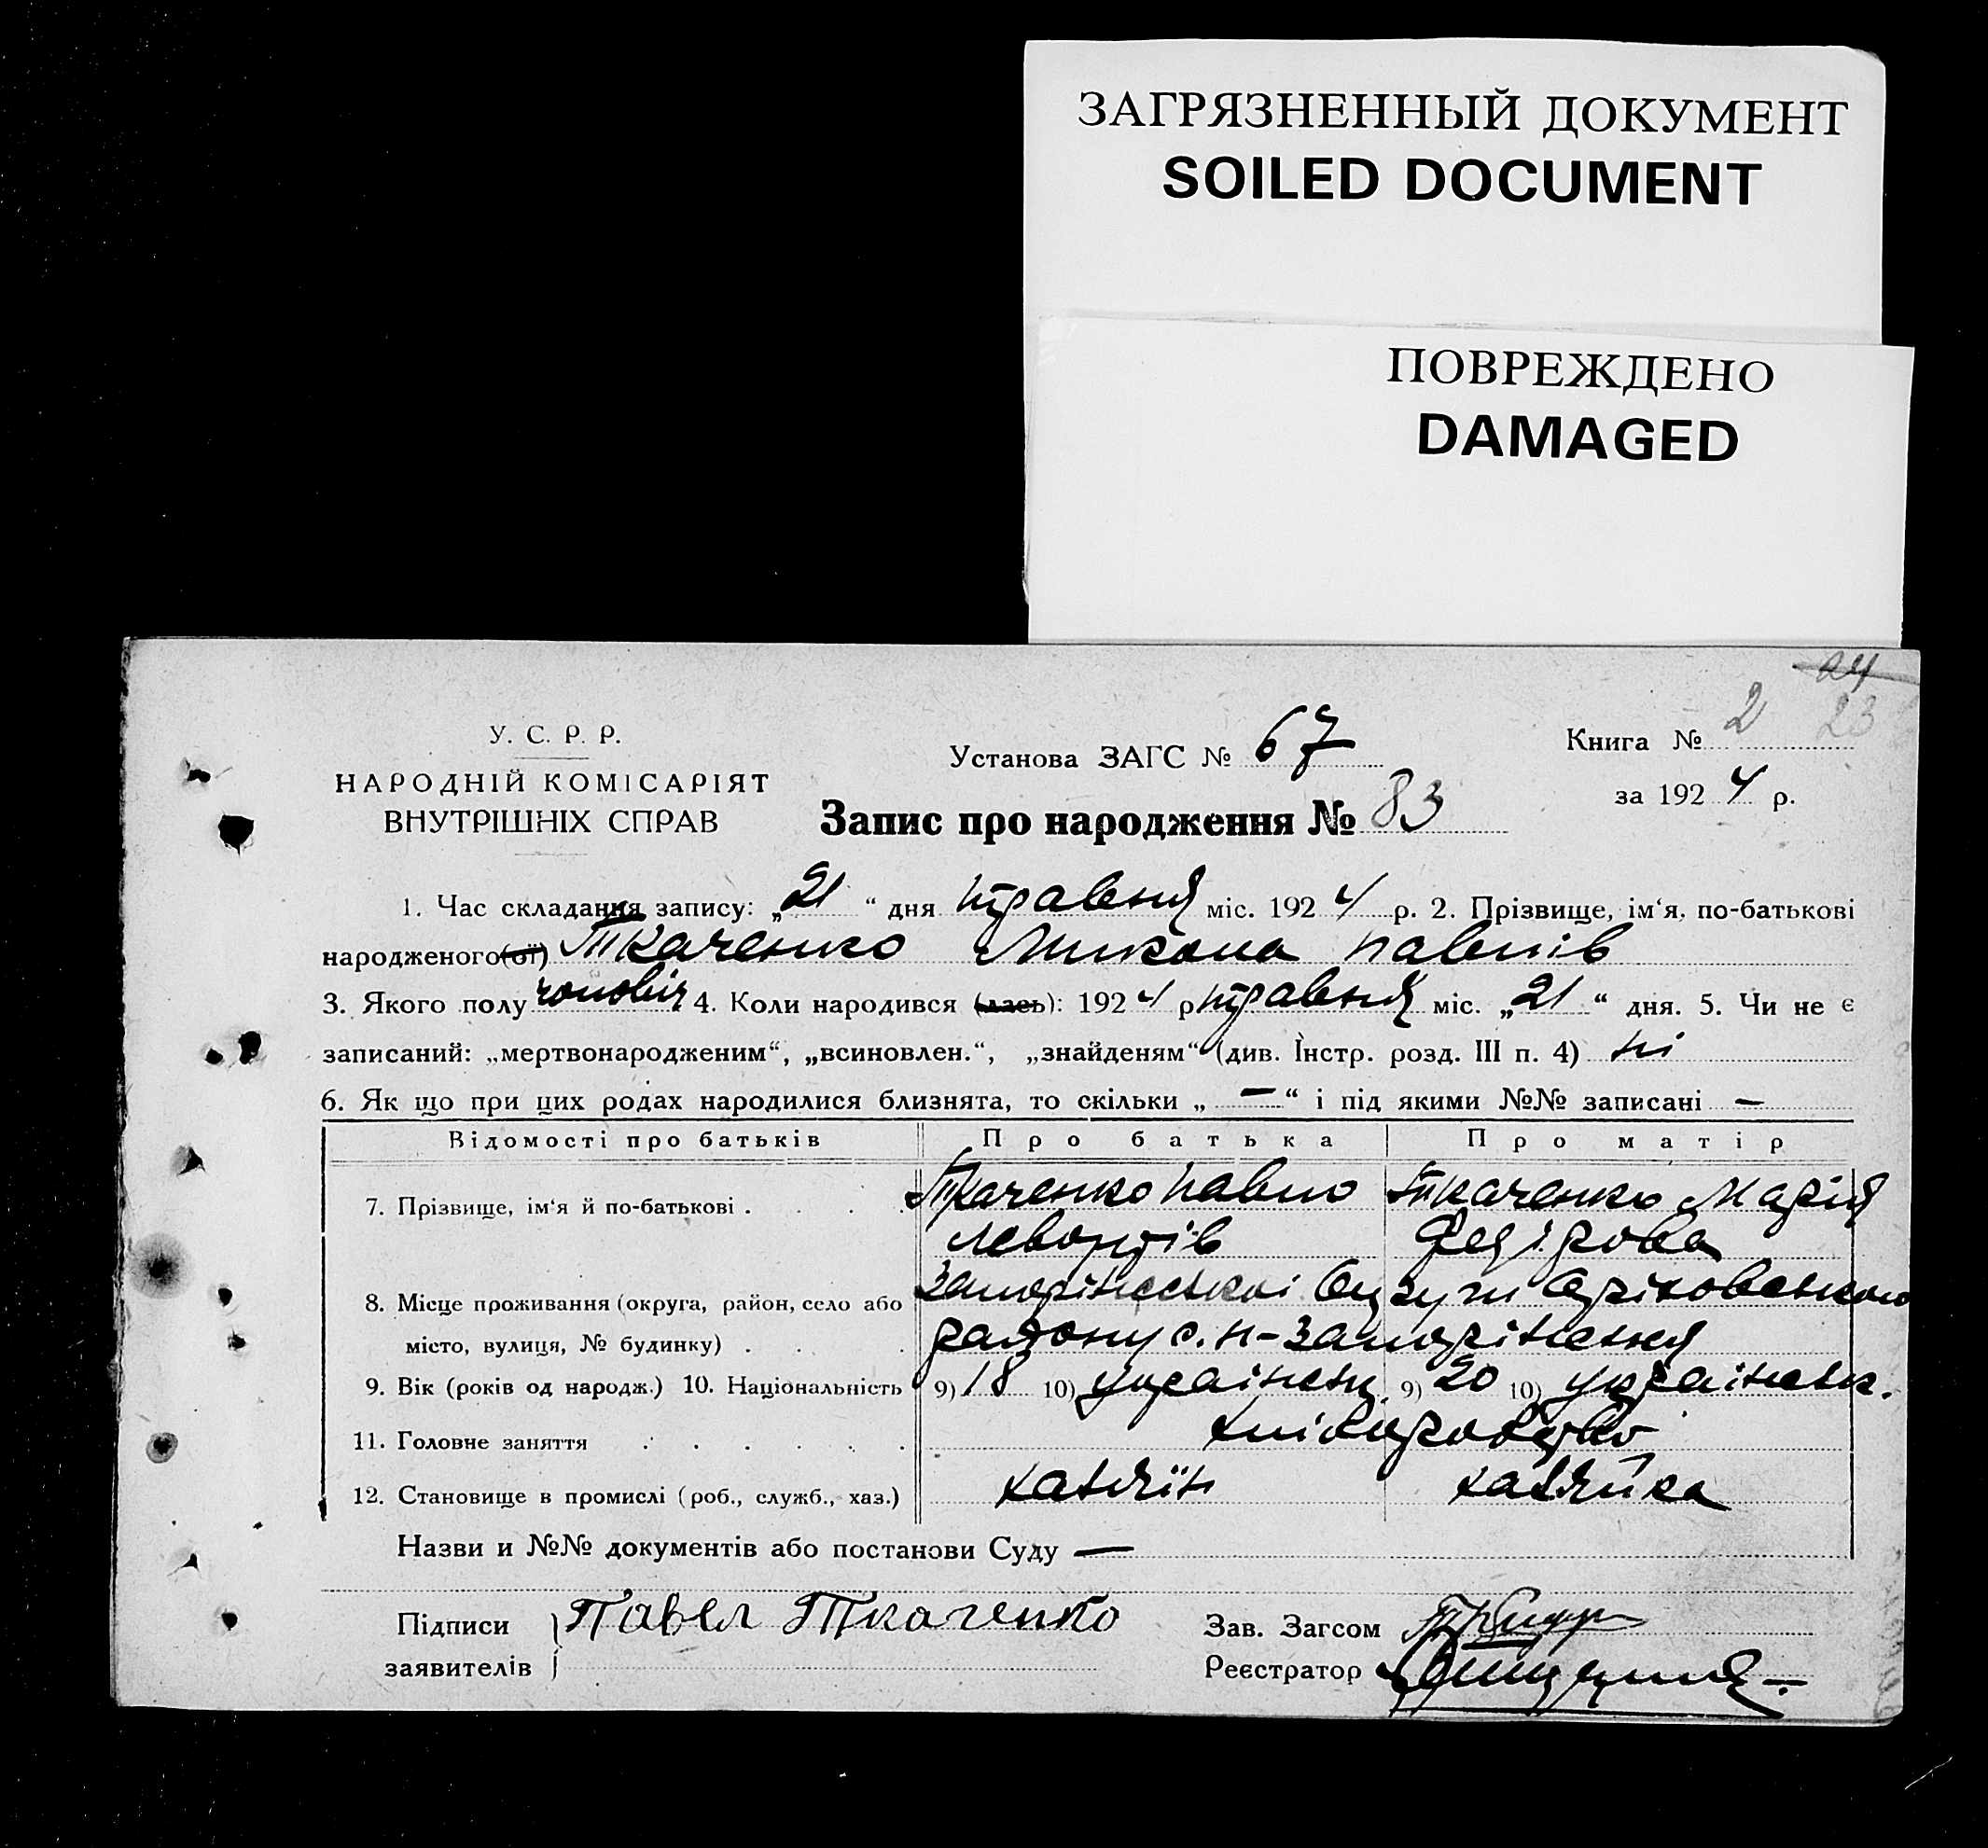 ЗАГРЯЗНЕННЫЙ ДОКУМЕНТ
SOILED DOCUMENT
ПОВРЕЖДЕНО
DAMAGED
24
23
У. С. Р. Р.
НАРОДНІЙ КОМІСАРІЯТ
ВНУТРІШНІХ СПРАВ
Установа ЗАГС № 67
Запис про народження № 83
Книга № 2
за 1924 р.
1. Час складання запису: „21“ дня травня міс. 1924 р. 2. Прізвище, ім‘я, по-батькові
народженого(ої) Ткаченко Микола павлів
3. Якого полу чоловіч 4. Коли народився (лась): 1924 р травня міс. „21“ дня. 5. Чи не є
записаний: „мертвонародженим“, „всиновлен.“, „знайденям“ (див. Інстр. розд. III п. 4) ні
6. Як що при цих родах народилися близнята, то скільки „—“ і під якими №№ записані —
Відомості про батьків Про батька Про матір
7. Прізвище, ім‘я й по-батькові . . . . Ткаченко павло Ткаченко Марія
Федірова
8. Місце проживання (округа, район, село або
місто, вулиця, № будинку) . . . району с. н-
9. Вік (років од народж.) 10. Національність 9) 18 10) українець 9) 20 10) українськ.
11. Головне заняття . . . . . . хліборобство
12. Становище в промислі (роб., служб., хаз.) хазяїн хазяйка
Назви и №№ документів або постанови Суду —
Підписи Павел Ткаченко
заявителів
Зав. Загсом
Реєстратор